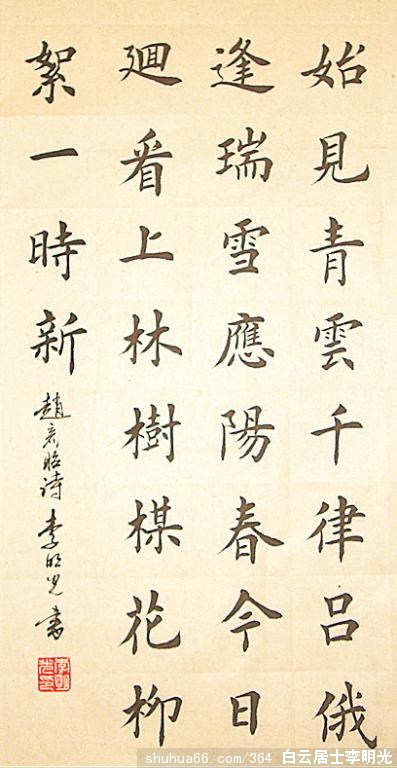 始見青雲千律呂俄
逢瑞雪應陽春今日
廻看上林樹楳花柳
絮一時新
趙彥昭诗 李明光 書
shuhua66.com/364 白云居士李明光